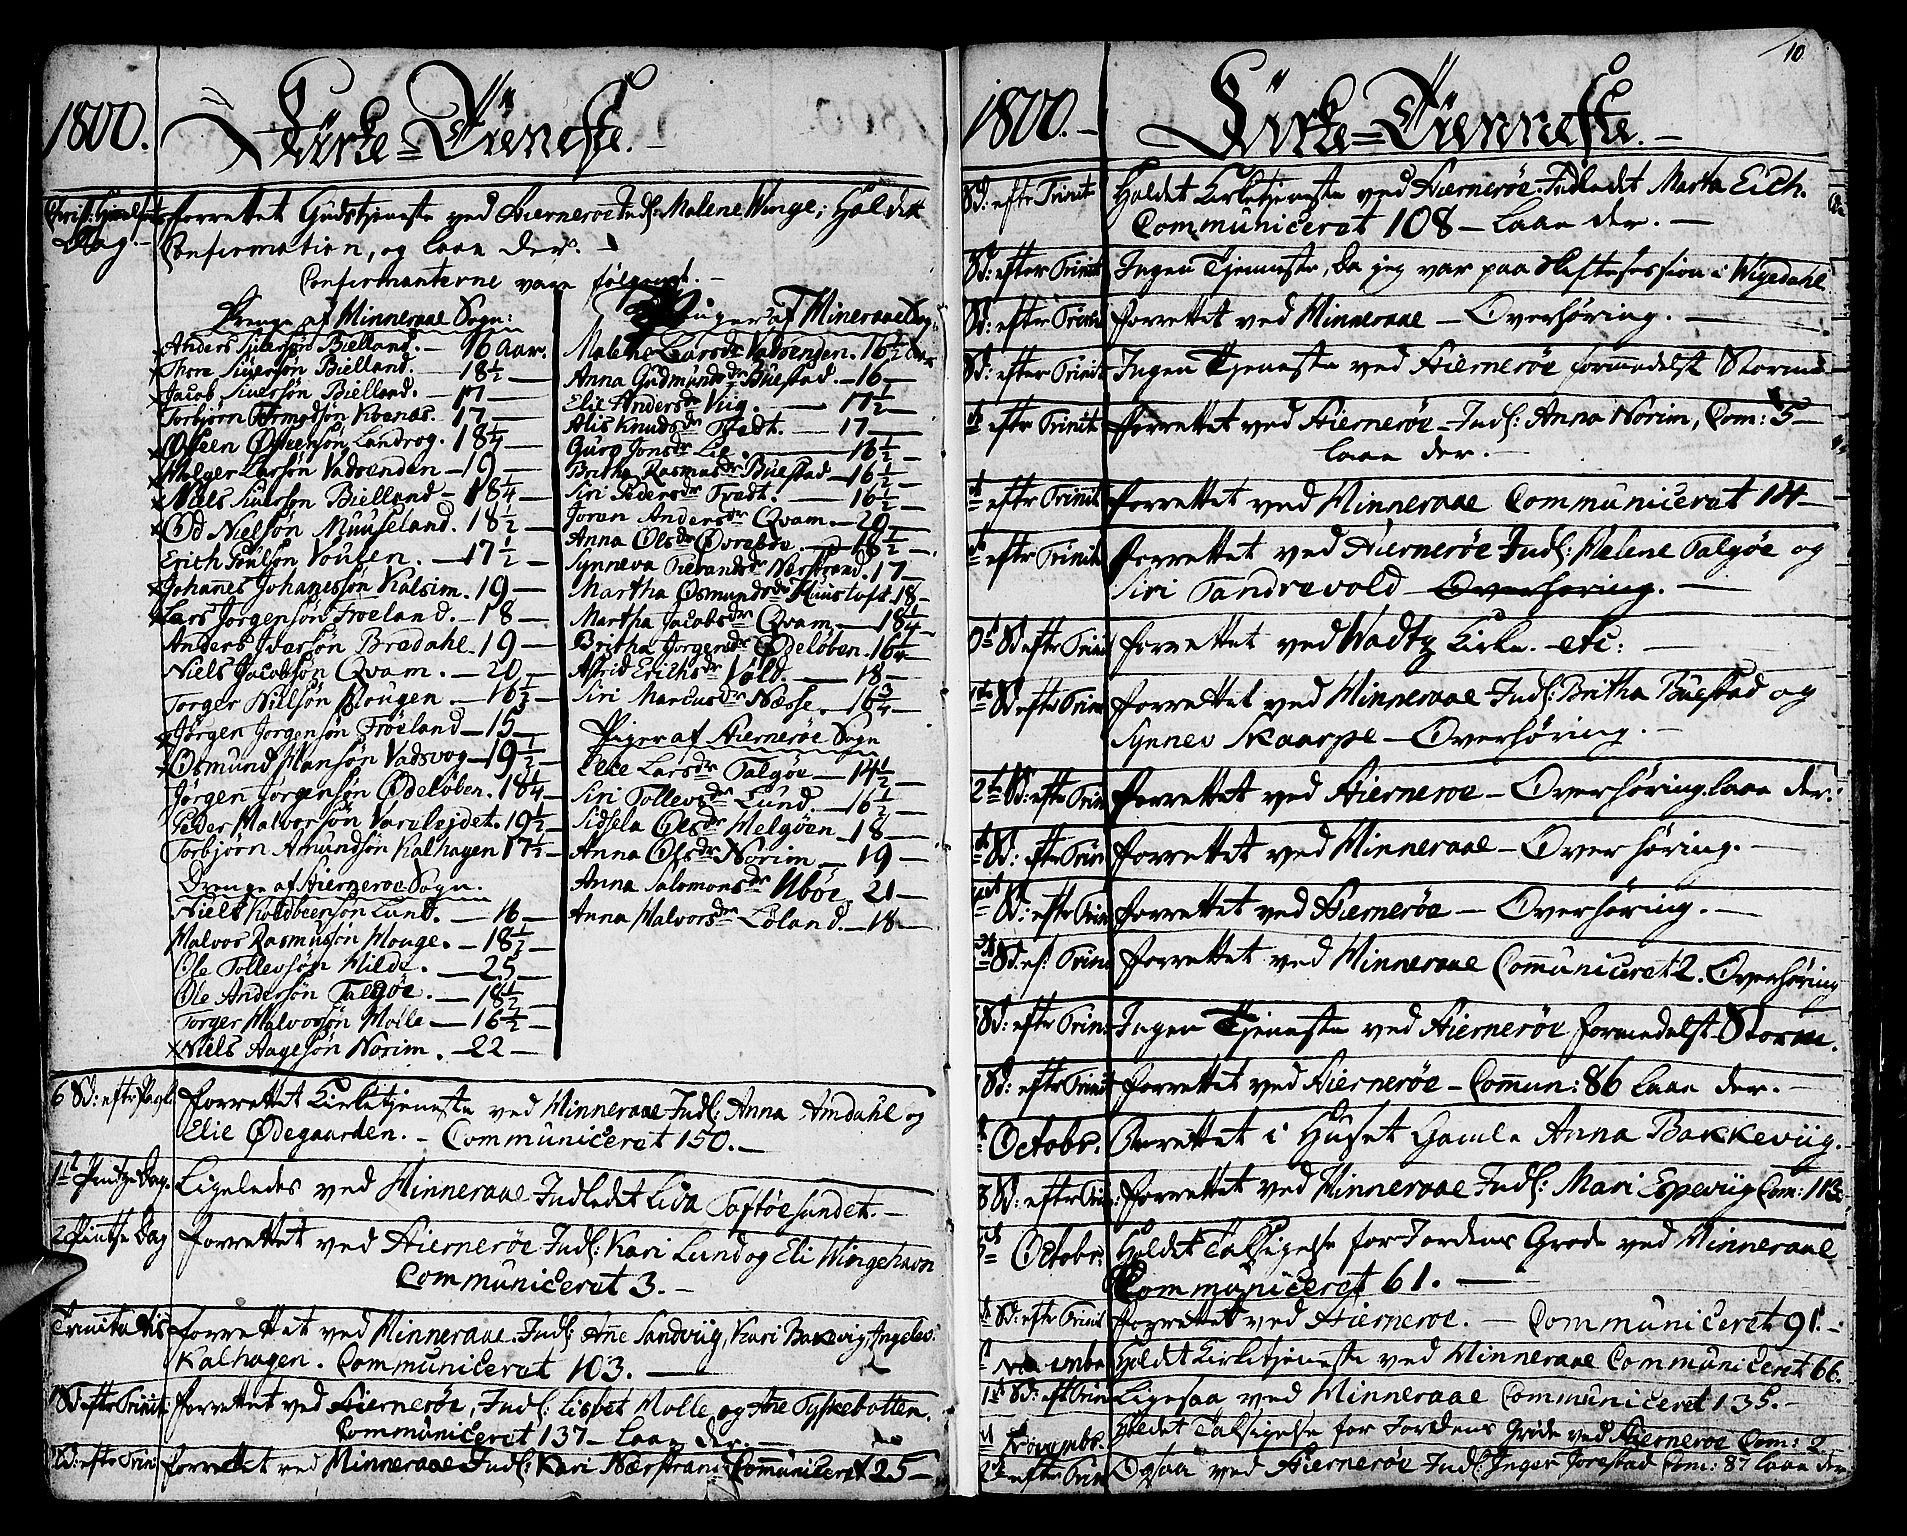 1800.
Kirke-Tieneste.
Christ: Himelfarts Dag.
forrettet Gudstjeneste ved Hiernerøe Indl: Malene Winge; Holdet
Confirmation, og laae der.
Confirmanterne vare følgende.
Drenge af Hinneraae Sogn:
Anders Siversøn Bielland. - 16 Aar.
Thore Siversøn Bielland. - 18½
Jacob Siversøn Bielland. - 17
Torbjørn Kvenas. 17
Østeen Østeensøn Landrog. 18¼
Holger Larsøn Vadsenden - 19
Niels Siversøn Bielland - 18¼
Od Nielsøn Muuseland. 18½
Erich Poulsøn Vougen. - 17½
Johannes Johannessøn Kalsim. 19
Lars Jørgensøn Frøeland. - 18
Anders Iversøn Bredahl. 19
Niels Jacobsøn Qvam. - 20
Torger Nielsøn Hougen. - 16½
Jørgen Jorgensøn Frøeland - 15
Osmund Hansøn Vadsvog - 19½
Jørgen Jorgensøn Ødeløben. 18¼
Peder Halvorsøn Varelejdet. 19½
Torbjørn Amundsøn Kalhagen 17½
Drenge af Hierneroe Sogn.
Niels Koldbeensøn Lund. - 16
Halvor Rasmusøn Houge. - 18½
Ole Tollevsøn Hilde. - 25
Ole Andersøn Talgøe. - 18½
Torger Halvorsøn Molle - 16½
Niels Aagesøn Norim. - 22
Piger af Hineraae Sogn
Malena Larsdr Vadsenden. 16½ Aar
Anna Gudmundsdr Buestad. - 16
Elie Andersdr Viig. - 17½
Alis Knudsdr Tvedt. - 17
Gurø Jonsdr Lie - 16½
Britha Rasmusdr Buestad - 16½
Siri Pedersdr Tvedt. - 16½
Joren Andersdr Qvam. - 20
Anna Olsdr Øvrebøe - 18½
Synneva Tierandsdr Nerstrand. 17
Martha Osmundsdr Huustoft. 18
Martha Jacobsdr Qvam. - 18¼
Britha Jorgensdr Ødeløben. 16
Astrid Erichsdr Vold. - 18
Siri Marcusdr Nesse. - 16¾
Piger af Hiernerøe Sogn
Elie Larsdr Talgøe - 14½
Siri Tollevsdr Lund. - 16½
Sidsela Olsdr Helgøen - 18
Anna Olsdr Norim - 19
Anna Salomonsdr Ubøe. 21
Anna Halvorsdr Løland. - 18
6 Sd: efter Paasche
forrettet Kirketjeneste ved Hinneraae Indl: Anna Amdahl og
Elie Ødegaarden. - Communiceret 150.
1ste Pintze Dag.
Ligeledes ved Hinneraae Indledet Lida Toftøesundet.
2 Pintse Dag
forrettet ved Hiernerøe Indl: Kari Lund og Eli Wingehavn
Communiceret 3.
Trinita tis
forrettet ved Hinneraae. Indl: Ane Sandviig, Kari Bakevig, Ingeleu
Kalhagen. Communiceret 103.
1 Sd: eftr Trinit:
forrettet ved Hiernerøe, Indl: Lisbet Molle og Ane Tyskebotten.
Communiceret 137 - laae der.
2 Sd: eftr Trinit
forrettet ved Hinneraae Indl: Kari Nærstrand Communiceret 25
10
1800.
Kirke-Tienneste.
Sd: eftr Trinit
Holdet Kirketjeneste ved Hiernerøe. Indledet Marta Eich.
Communiceret 108 - laae der.
Sd: efter Trinit
Ingen Tjenneste, da jeg var paa Høstesession i Wigedahl
Sd: eftr Trinit
forrettet ved Hinneraae - Overhøring.
Sd: efter Trinit
Ingen Tjeneste ved Hiernerøe formedelst Storm
eftr Trinit
forrettet ved Hiernerøe - Indl: Anna Norim, Com: 5
laae der.
eftr Trinit
forrettet ved Hinneraae Communiceret 14
eftr Trinit
forrettet ved Hiernerøe Indl: Malene Talgøe og
Siri Tandrevold Overhøring.
0de Sd eftr Trinit
forrettet ved Wadtz Kirke. etc:
Sd eftr Trinit
forrettet ved Hinneraae Indl: Britha Buestad og
Synnev Skaarpe - Overhøring.
2te Sd: eftr Trin
forrettet ved Hierneroe - Overhøring. laae der.
Sd: eftr Trin
forrettet ved Hinneraae - Overhøring.
Sd: eftr Trin
forrettet ved Hiernerøe - Overhøring.
Sd. ef: Trini
forrettet ved Hinneraae Communiceret 2. Overhøring
Sd: eftr Trin
Ingen Tjeneste ved Hiernerøe formedelst Storm.
Sd: eftr Trinit
forrettet ved Hiernerøe - Commun: 86 laae der.
Octobr.
Berettet i Huset Gamle Anna Bakkeviig.
8 Sd: eftr Trin:
forrettet ved Hinneraae Indl: Mari Espeviig Com: 113
Octobr.
Holdet Taksigelse for Jordens Grøde ved Hinneraae
Communiceret 61.
Sd: eftr Trinit
forrettet ved Hierneroe. - Communiceret 91.
Holdet Kirketjeneste ved Hinneraae Communiceret 66.
Sd: eft Trin
Ligesaa ved Hinneraae Communiceret 135.
Novembr.
Holdet Taksigelse for Jordens Grøde ved Hierneroe Com: 2
eftr Trin
Ogsaa ved Hiernerøe Indl: Inger Jorestad Com: 87 laae der